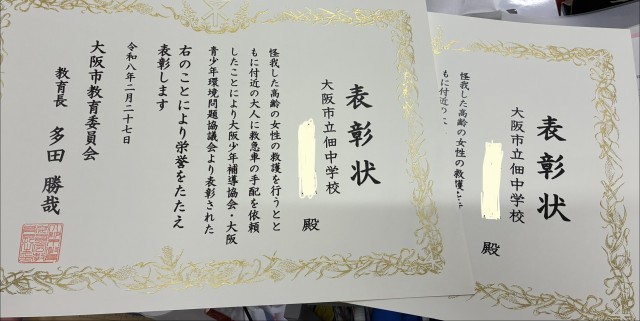 表彰状
大阪市立佃中学校
殿
怪我した高齢の女性の救護を行うとと
もに付近の大人に救急車の手配を依頼
したことにより大阪少年補導協会・大阪
青少年環境問題協議会より表彰された
右のことにより栄誉をたたえ
表彰します
令和八年二月二十七日
大阪市教育委員会
教育長 多田 勝哉
表彰状
大阪市立佃中学校
殿
怪我した高齢の女性の救護を
もに付近の